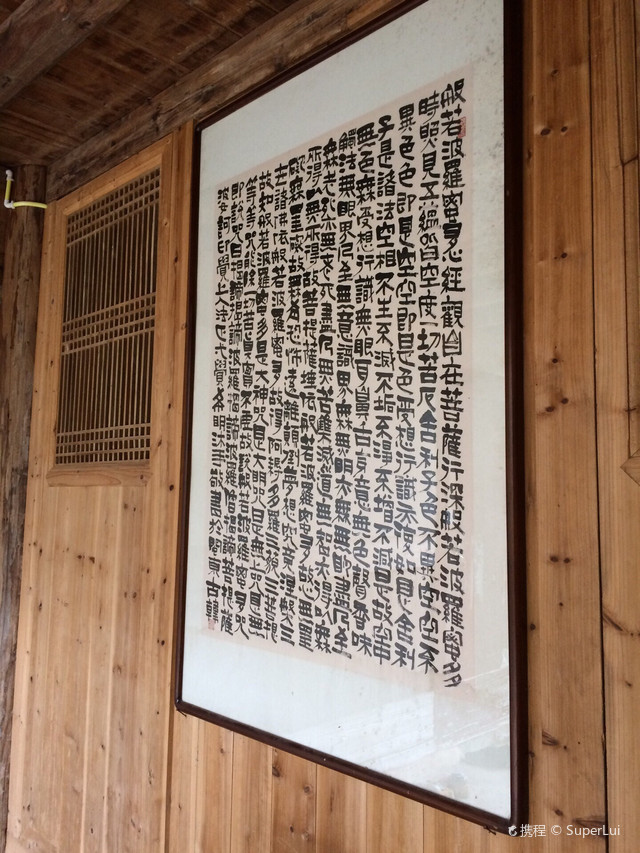 般若波羅蜜多心經觀自在菩薩行深般若波羅蜜多
時照見五蘊皆空度一切苦厄舍利子色不異空空不
異色色即是空空即是色受想行識亦復如是舍利
子是諸法空相不生不滅不垢不淨不增不減是故空中
無色無受想行識無眼耳鼻舌身意無色聲香味
觸法無眼界乃至無意識界無無明亦無無明盡乃至
無老死亦無老死盡無苦集滅道無智亦無得以無
所得以無所得故菩提薩埵依般若波羅蜜多故心無罣
礙無罣礙故無有恐怖遠離顛倒夢想究竟涅槃三
世諸佛依般若波羅蜜多故得阿耨多羅三藐三菩提
故知般若波羅蜜多是大神咒是大明咒是無上咒是無
等等咒能除一切苦真實不虛故說般若波羅蜜多咒
即說咒曰揭諦揭諦波羅揭諦波羅僧揭諦菩提薩
婆訶 敬書於閩東古韓
携程 © SuperLui